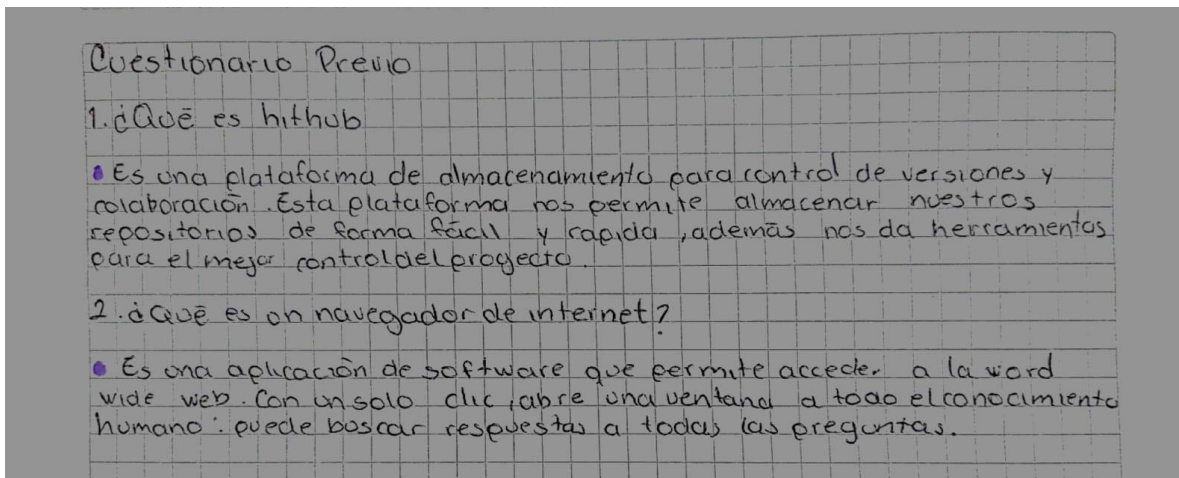 Cuestionario Previo
1. ¿Qué es hithub
• Es una plataforma de almacenamiento para control de versiones y
colaboración. Esta plataforma nos permite almacenar nuestros
repositorios de forma fácil y rapida, además nos da herramientas
para el mejor control del proyecto.
2. ¿Qué es un navegador de internet?
• Es una aplicación de software que permite acceder a la word
wide web. Con un solo clic, abre una ventana a todo el conocimiento
humano: puede buscar respuestas a todas las preguntas.